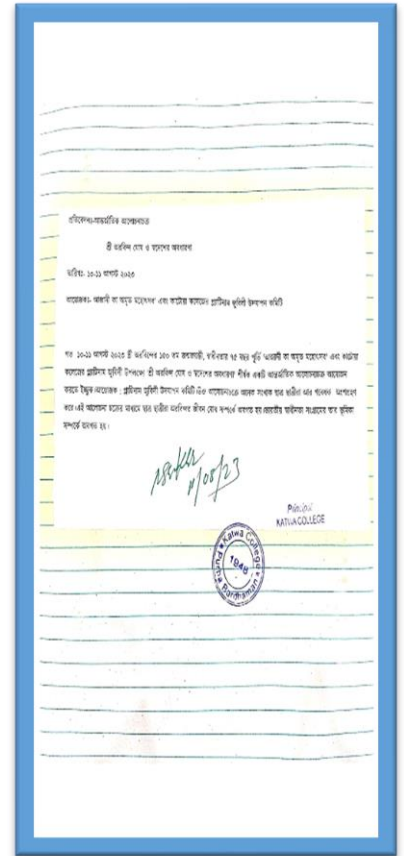 প্রতিবেদনঃ-আন্তর্জাতিক আলোচনাচক্র
শ্রী অরবিন্দ ঘোষ ও স্বদেশের অবধারণা
তারিখঃ- ১০-১১ আগস্ট ২০২৩
আয়োজকঃ- আজাদী কা অমৃত মহোৎসব' এবং কাটোয়া কলেজের প্লাটিনাম জুবিলী উদযাপন কমিটি
গত ১০-১১ আগস্ট ২০২৩ শ্রী অরবিন্দের ১৫০ তম জন্মজয়ন্তী, স্বাধীনতার ৭৫ বছর পূর্তি 'আজাদী কা অমৃত মহোৎসব' এবং কাটোয়া
কলেজের প্লাটিনাম জুবিলী উপলক্ষ্যে শ্রী অরবিন্দ ঘোষ ও স্বদেশের অবধারণা' শীর্ষক একটি আন্তর্জাতিক আলোচনাচক্র আয়োজন
করতে ইচ্ছুক।আয়োজক : প্লাটিনাম জুবিলী উদযাপন কমিটি এই আলোচনাচক্রে অনেক সংখ্যক ছাত্র ছাত্রীরা আর গবেষক অংশগ্রহণ
করে।এই আলোচনা চক্রের মাধ্যমে ছাত্র ছাত্রীরা অরবিন্দর জীবন বোধ সম্পর্কে অবগত হয়।ভারতীয় স্বাধীনতা সংগ্রামের তার ভূমিকা
সম্পর্কে অবগত হয়।
11/08/23
Principal
KATWA COLLEGE
Katwa College
1948
Purba Bardhaman